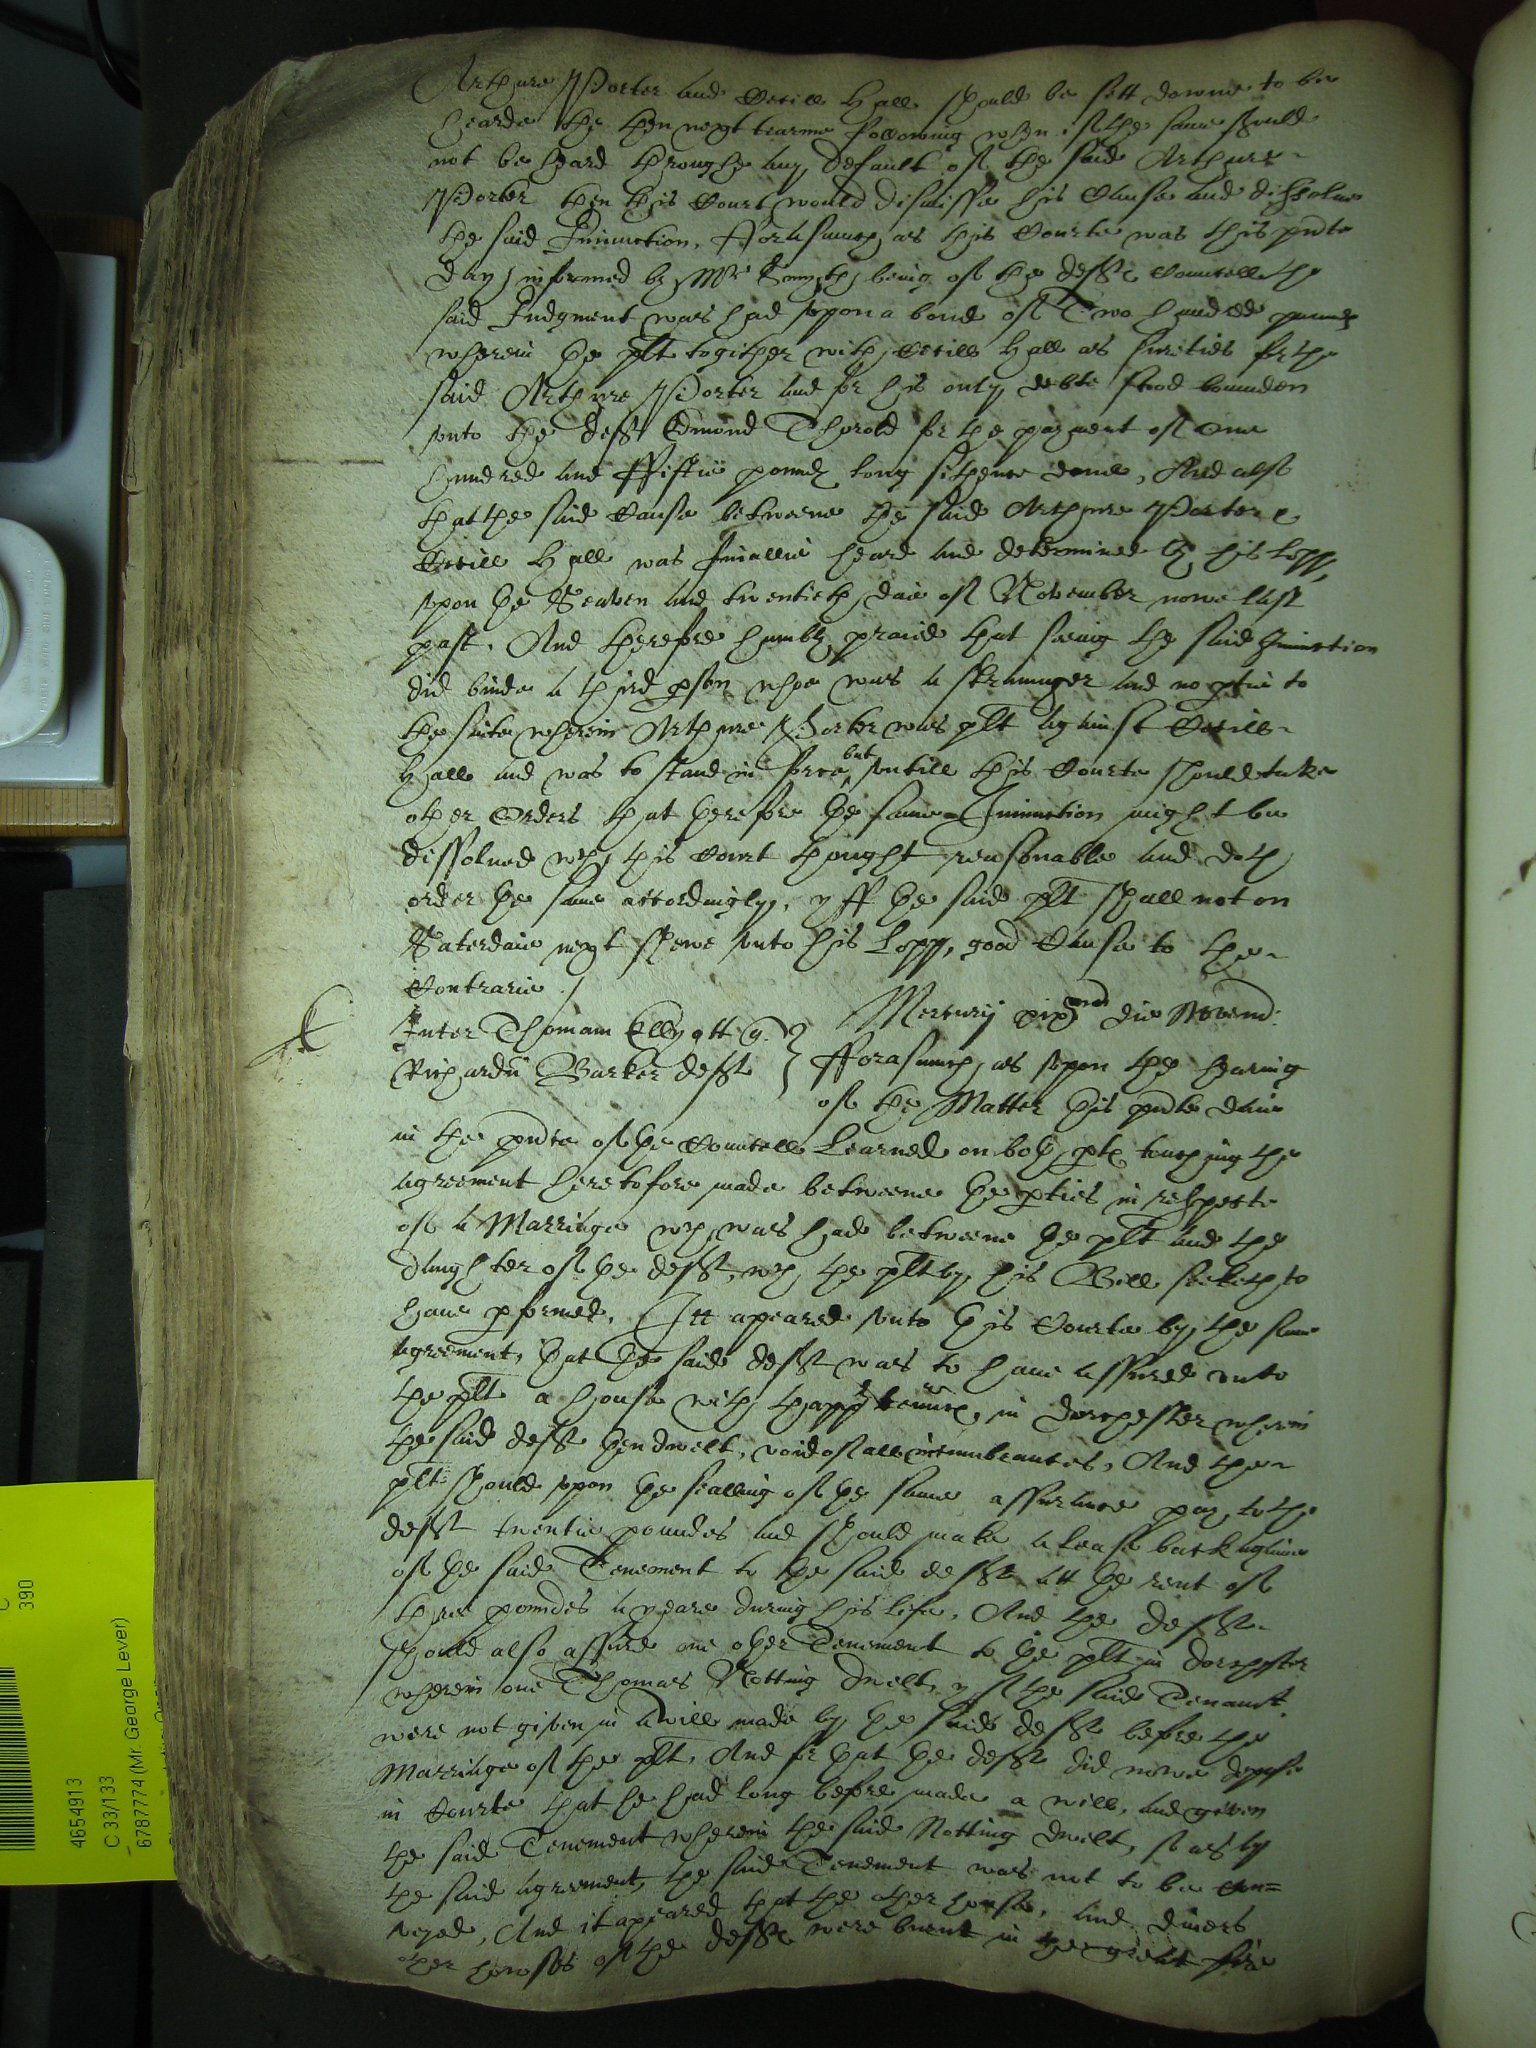 Arthure Porter and Cecill Hall should be sett downe to be
hearde the then next tearme following when if the same should
not be heard throughe any default of the said Arthure
Porter then this Court would dismisse his Cause and dissolue
the said Iniunction, Fforasmuch as this Courte was this pñte
day informed by Mr Smyth being of the defts Councell the
said Iudgment was had vpon a bond of Two hundred pounds
wherein the plt togither with Cecill Hall as sureties for the
said Arthure Porter and for his only debte stood bounden
vnto the deft Edmond Thorold for the payment of One
hundred and Ffiftie pounds long sithence done, And also
that the said Cause betweene the said Arthure Porter &
Cecill Hall was finallie heard and determined by his Lopp,
vpon the Seaven and twentieth daie of November nowe last
past, And therefore humbly praied that seeing the said Iniunction
did binde a third pson whoe was a straunger and no ptie to
the suite wherein Arthure Porter was plt against Cecill
Hall and was to stand in force but vntill this Courte should take
other Orders that therefore the same Iniunction might be
dissolued wch this Court thought reasonable and doth
order the same accordingly, yff the said plt shall not on
Saterdaie next shewe vnto his Lopp, good Cause to the
Contrarie /
Mercurij die Novemb:
Inter Thomam Ellyott q.
Richardũ Barker deft
Fforasmuch as vpon the hearing
of the Matter this pñte daie
in the pñce of the Councell Learned on both pts touching the
agreement heretofore made betweene the pties in respecte
of a Marriage wch was had betweene the plt and the
daughter of the deft, wch the plt by his Bill seeketh to
haue pformed, Itt apeared vnto this Courte by the same
agreement, that the said deft was to haue assured vnto
the plt a house with thapp in Dorchester wherein
the said deft then dwelt, void of all incumbrances, And the
plt should vpon the sealling of the same assurance pay to the
deft twentie poundes and should make a lease back againe
of the said Tenement to the said deft att the rent of
three poundes a yeare during his life, And the deft
should also assure one other Tenement to the plt in Dorchester
wherein one Thomas Notting dwelt, yf the said Tenamt
were not given in a will made by the said deft before the
Marriage of the plt, And for that the deft did nowe depose
in Courte that he had long before made a will, and given
the said Tenement wherein the said Notting dwelt, so as by
the said agreement, the said Tenement was not to be con=
veyed, And it apeared that the other house, and divers
other howses of the defts were burnt in the great fire
4654913
C 33/133
6787774 (Mr. George Lever)
C
390